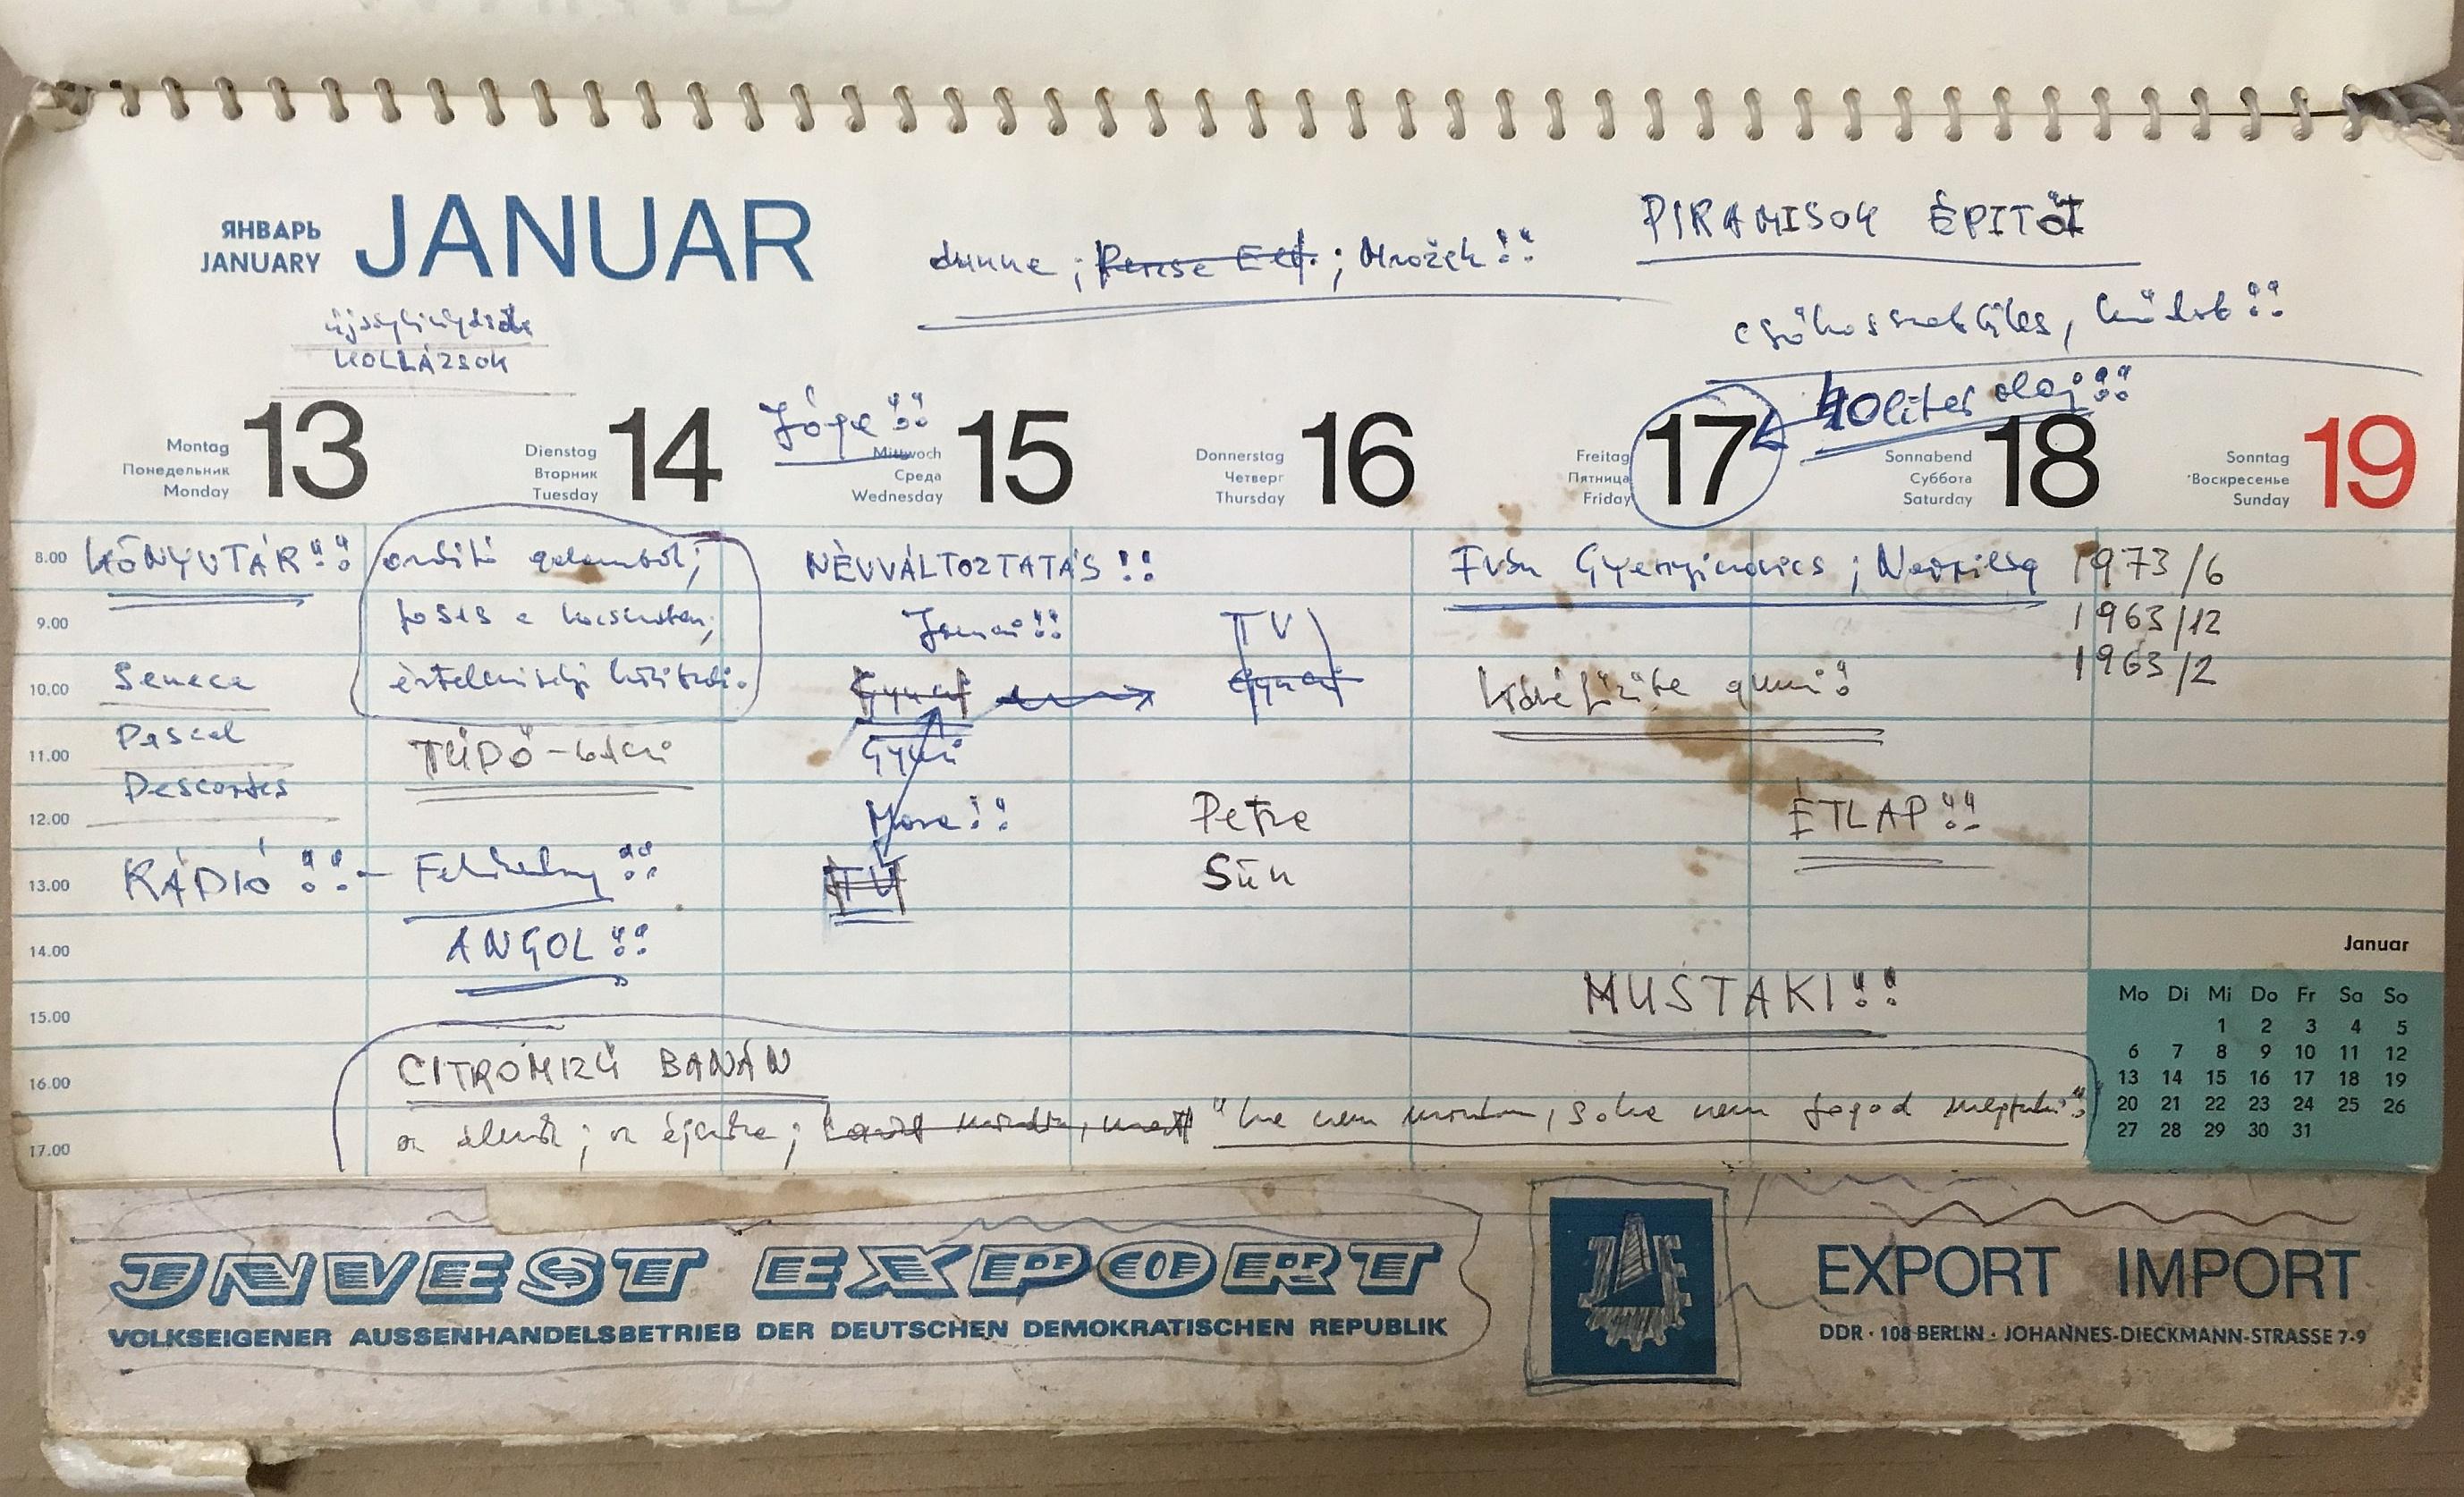 ЯНВАРЬ
JANUARY
JANUAR
dunne ; Persse Elf. ; Mrožek!!
PIRAMISOK ÉPITŐI
KOLLÁZSOK
40 liter olaj!!!
Jóga!!
Montag
Понедельник
Monday
13
Dienstag
Вторник
Tuesday
14
Mittwoch
Среда
Wednesday
15
Donnerstag
Четверг
Thursday
16
Freitag
Пятница
Friday
17
Sonnabend
Суббота
Saturday
18
Sonntag
Воскресенье
Sunday
19
8.00
KÖNYVTÁR!!
ordító galambok;
NÉVVÁLTOZTATÁS!!
Iván Gyenyiszovics ;
1973/6
9.00
TV
1963/12
1963/2
10.00
Seneca
Gyuri
Kávéfőzőbe gumi!
11.00
Pascal
TÜDŐ-baci
Gyuri
Descartes
12.00
Petra
ÉTLAP!!
13.00
RÁDIÓ!!-
TV
Sün
14.00
ANGOL!!
MUSTAKI!!
15.00
16.00
CITROMIZŰ BANÁN
17.00
az álmok; az éjszaka; "ha nem mondom, soha nem fogod megtudni"
Januar
Mo Di Mi Do Fr Sa So
1 2 3 4 5
6 7 8 9 10 11 12
13 14 15 16 17 18 19
20 21 22 23 24 25 26
27 28 29 30 31
INVEST EXPORT
VOLKSEIGENER AUSSENHANDELSBETRIEB DER DEUTSCHEN DEMOKRATISCHEN REPUBLIK
EXPORT IMPORT
DDR · 108 BERLIN · JOHANNES-DIECKMANN-STRASSE 7-9